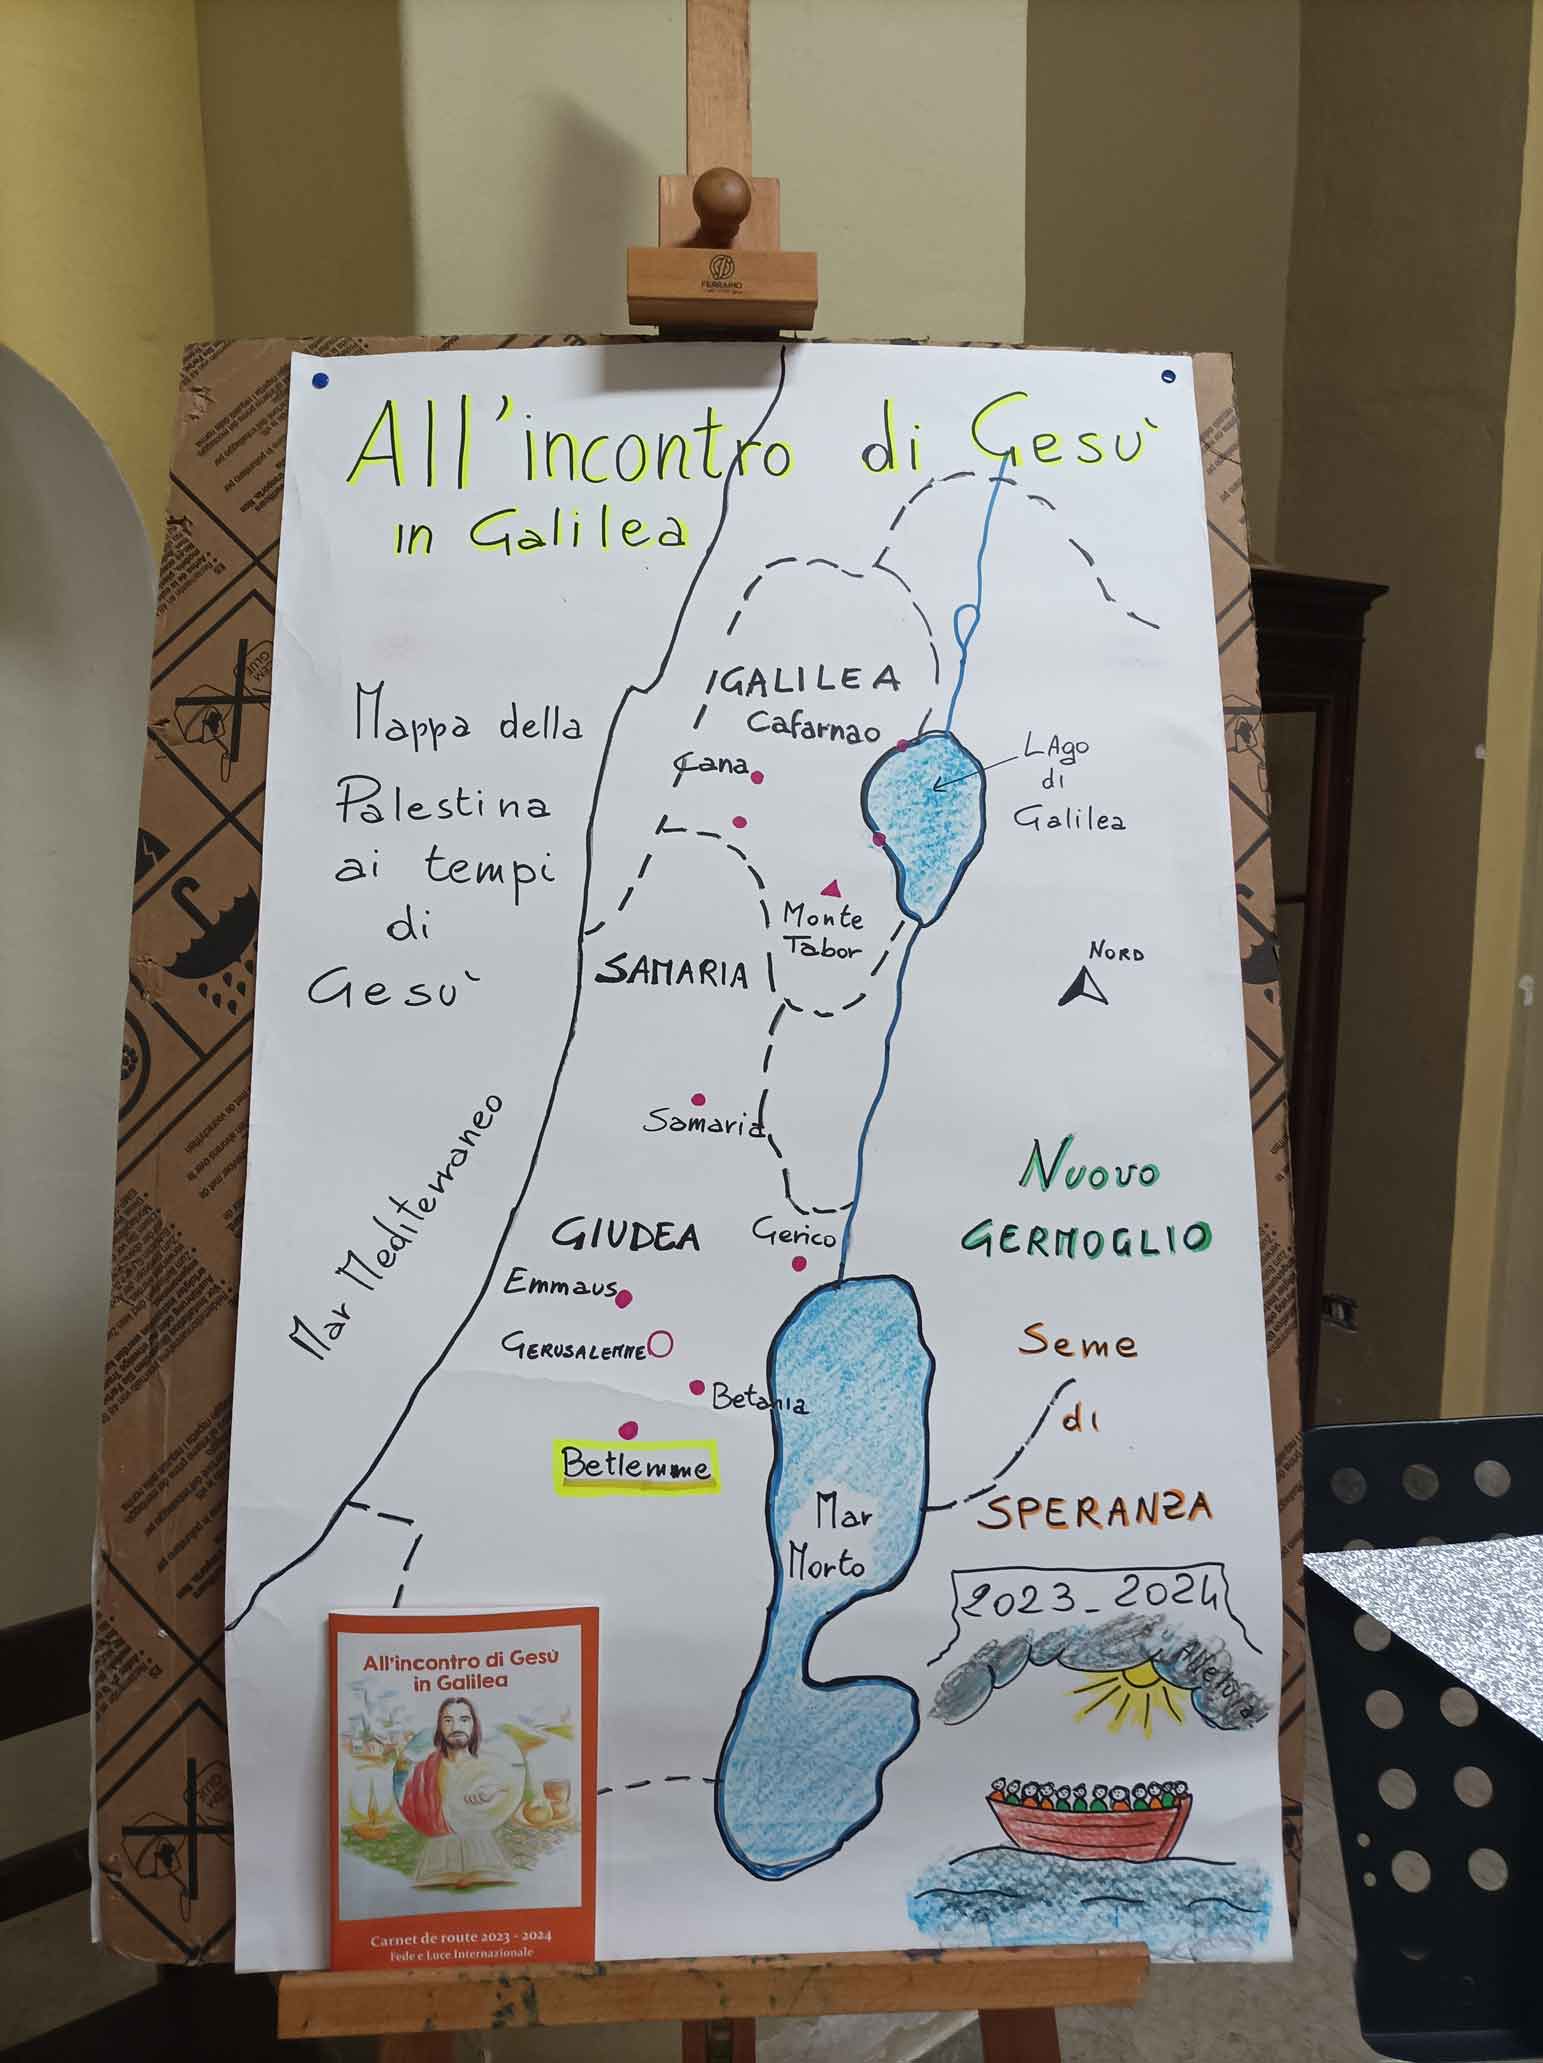 FERRARIO
All'incontro di Gesù
in Galilea
Mappa della
Palestina
ai tempi
di
Gesù
GALILEA
Cafarnao
Cana
Lago
di
Galilea
Monte
Tabor
NORD
SAMARIA
Samaria
Mar Mediterraneo
NUOVO
GERMOGLIO
GIUDEA
Gerico
Emmaus
GERUSALEMME
Betania
Betlemme
Seme
di
SPERANZA
Mar
Morto
2023_2024
All'incontro di Gesù
in Galilea
Carnet de route 2023 - 2024
Fede e Luce Internazionale